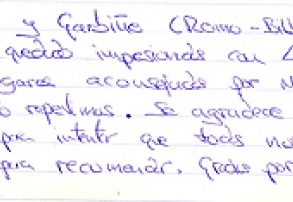 y Garbiñe (Romo-Bil
quedado impresionados con
lugares aconsejados por
repetimos. Se agradece
por intentar que todos
para recomendar. Gracias por